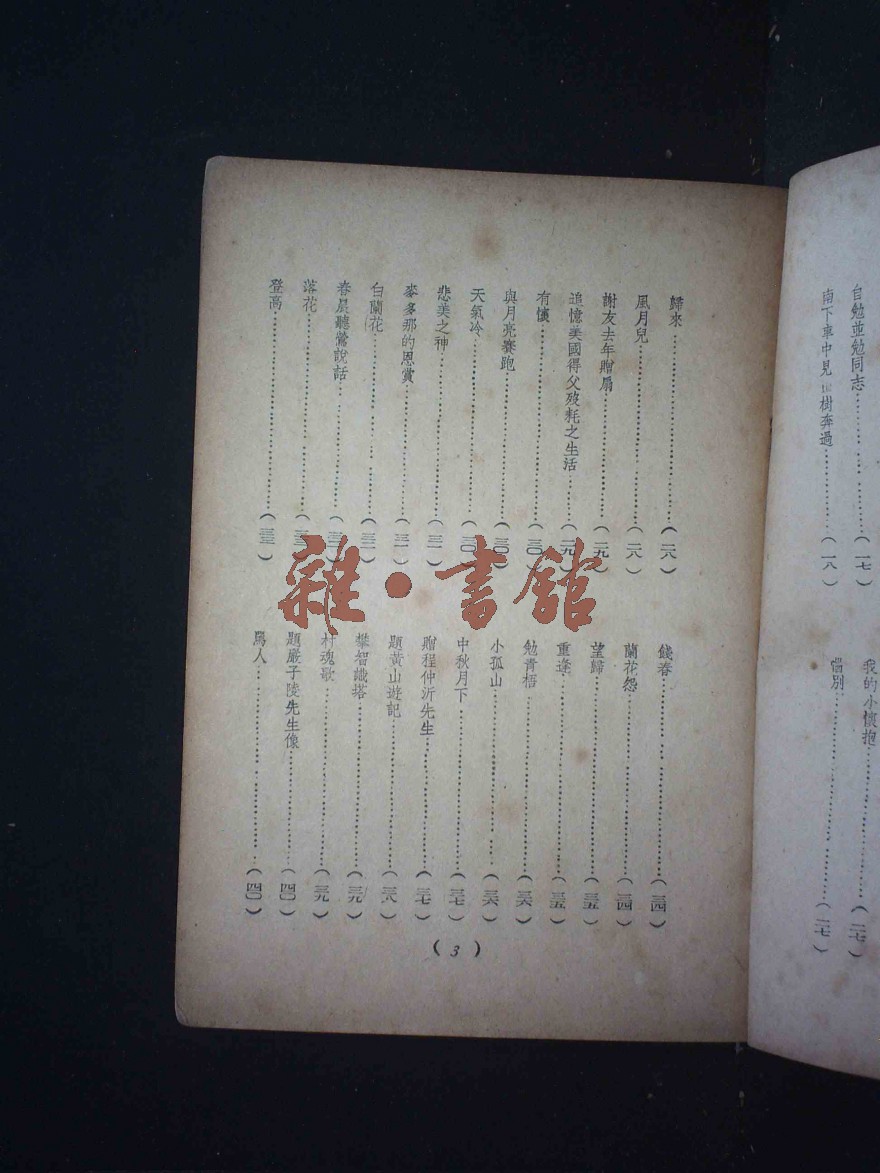 自勉並勉同志……(一七)
南下車中見樹奔過……(一八)
我的小懷抱……(二七)
別……(二七)
歸來……(二八)
風月兒……(二八)
謝友去年贈扇……(二九)
追憶美國得父歿耗之生活……(二九)
有懷……(三〇)
與月亮賽跑……(三〇)
天氣冷……(三〇)
悲美之神……(三一)
麥多那的恩賞……(三一)
白蘭花……(三二)
春晨聽鶯說話……(三二)
落花……(三三)
登高……(三三)
餞春……(三四)
蘭花怨……(三四)
望歸……(三五)
重逢……(三五)
勉青梧……(三六)
小孤山……(三六)
中秋月下……(三七)
贈程仲沂先生……(三七)
題黃山遊記……(三八)
攀智巇塔……(三九)
村魂歌……(三九)
題嚴子陵先生像……(四〇)
罵人……(四〇)
(3)
雜·書館